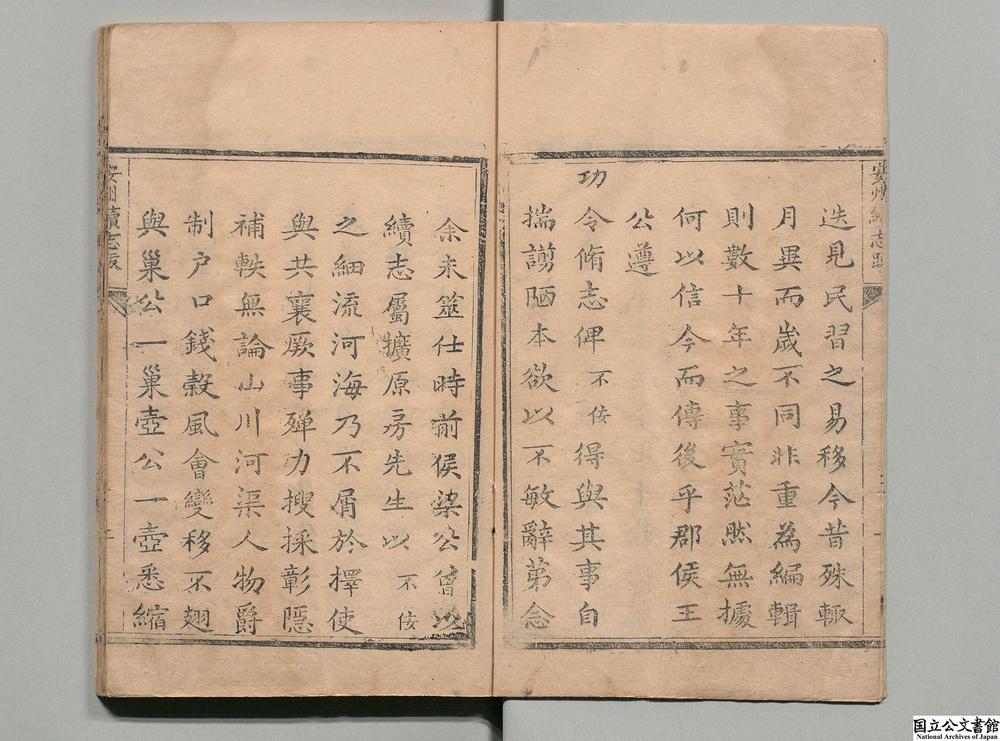 迭見民習之易移今昔殊輙
月異而歲不同非重為編輯
則數十年之事實茫然無據
何以信今而傳後乎郡侯王
公遵
功令脩志俾不佞得與其事自
揣謭陋本欲以不敏辭第念
余未筮仕時前侯梁公曾以
續志屬擴原房先生以不佞
之細流河海乃不屑於擇使
與共襄厥事殫力搜採彰隱
補軼無論山川河渠人物爵
制户口錢穀風會變移不翅
與巢公一巢壺公一壺悉縮
安州續志跋
国立公文書館
National Archives of Japan